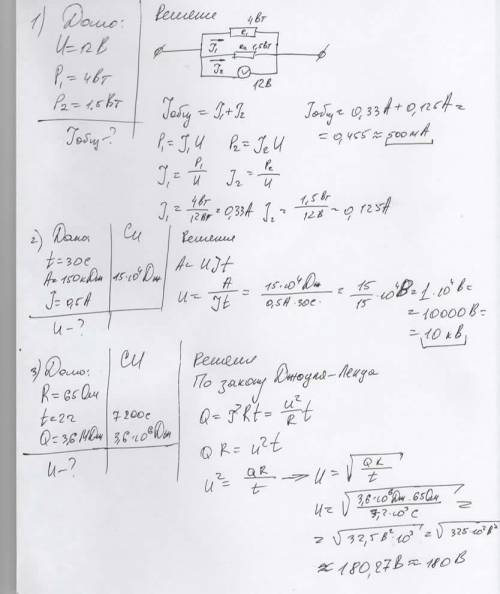 1) Дано:
U = 12В
P₁ = 4Вт
P₂ = 1,5Вт
Iобщ - ?
Решение
4Вт
R₁
I₁
R₂ 1,5Вт
I₂
12В
Iобщ = I₁ + I₂
P₁ = I₁ U P₂ = I₂ U
I₁ = P₁/U I₂ = P₂/U
I₁ = 4Вт/12Вт = 0,33А I₂ = 1,5Вт/12В = 0,125А
Iобщ = 0,33А + 0,125А =
= 0,455 ≈ 500мА
2) Дано
t = 30с
A = 150кДж
I = 0,5А
U - ?
Си
15·10⁴Дж
Решение
A = UIt
U = A/It = 15·10⁴Дж/0,5А·30с = 15/15·10⁴В = 1·10⁴В =
= 10000В =
= 10кВ
3) Дано:
R = 65Ом
t = 2ч
Q = 3,6МДж
U - ?
Си
7200с
3,6·10⁶Дж
Решение
По закону Джоуля-Ленца
Q = I²Rt = U²/R t
QR = U²t
U² = QR/t → U = √QR/t
U = √3,6·10⁶Дж·65Ом/7,2·10³с =
= √32,5В²·10³ = √325·10²В²
≈ 180,27В ≈ 180В